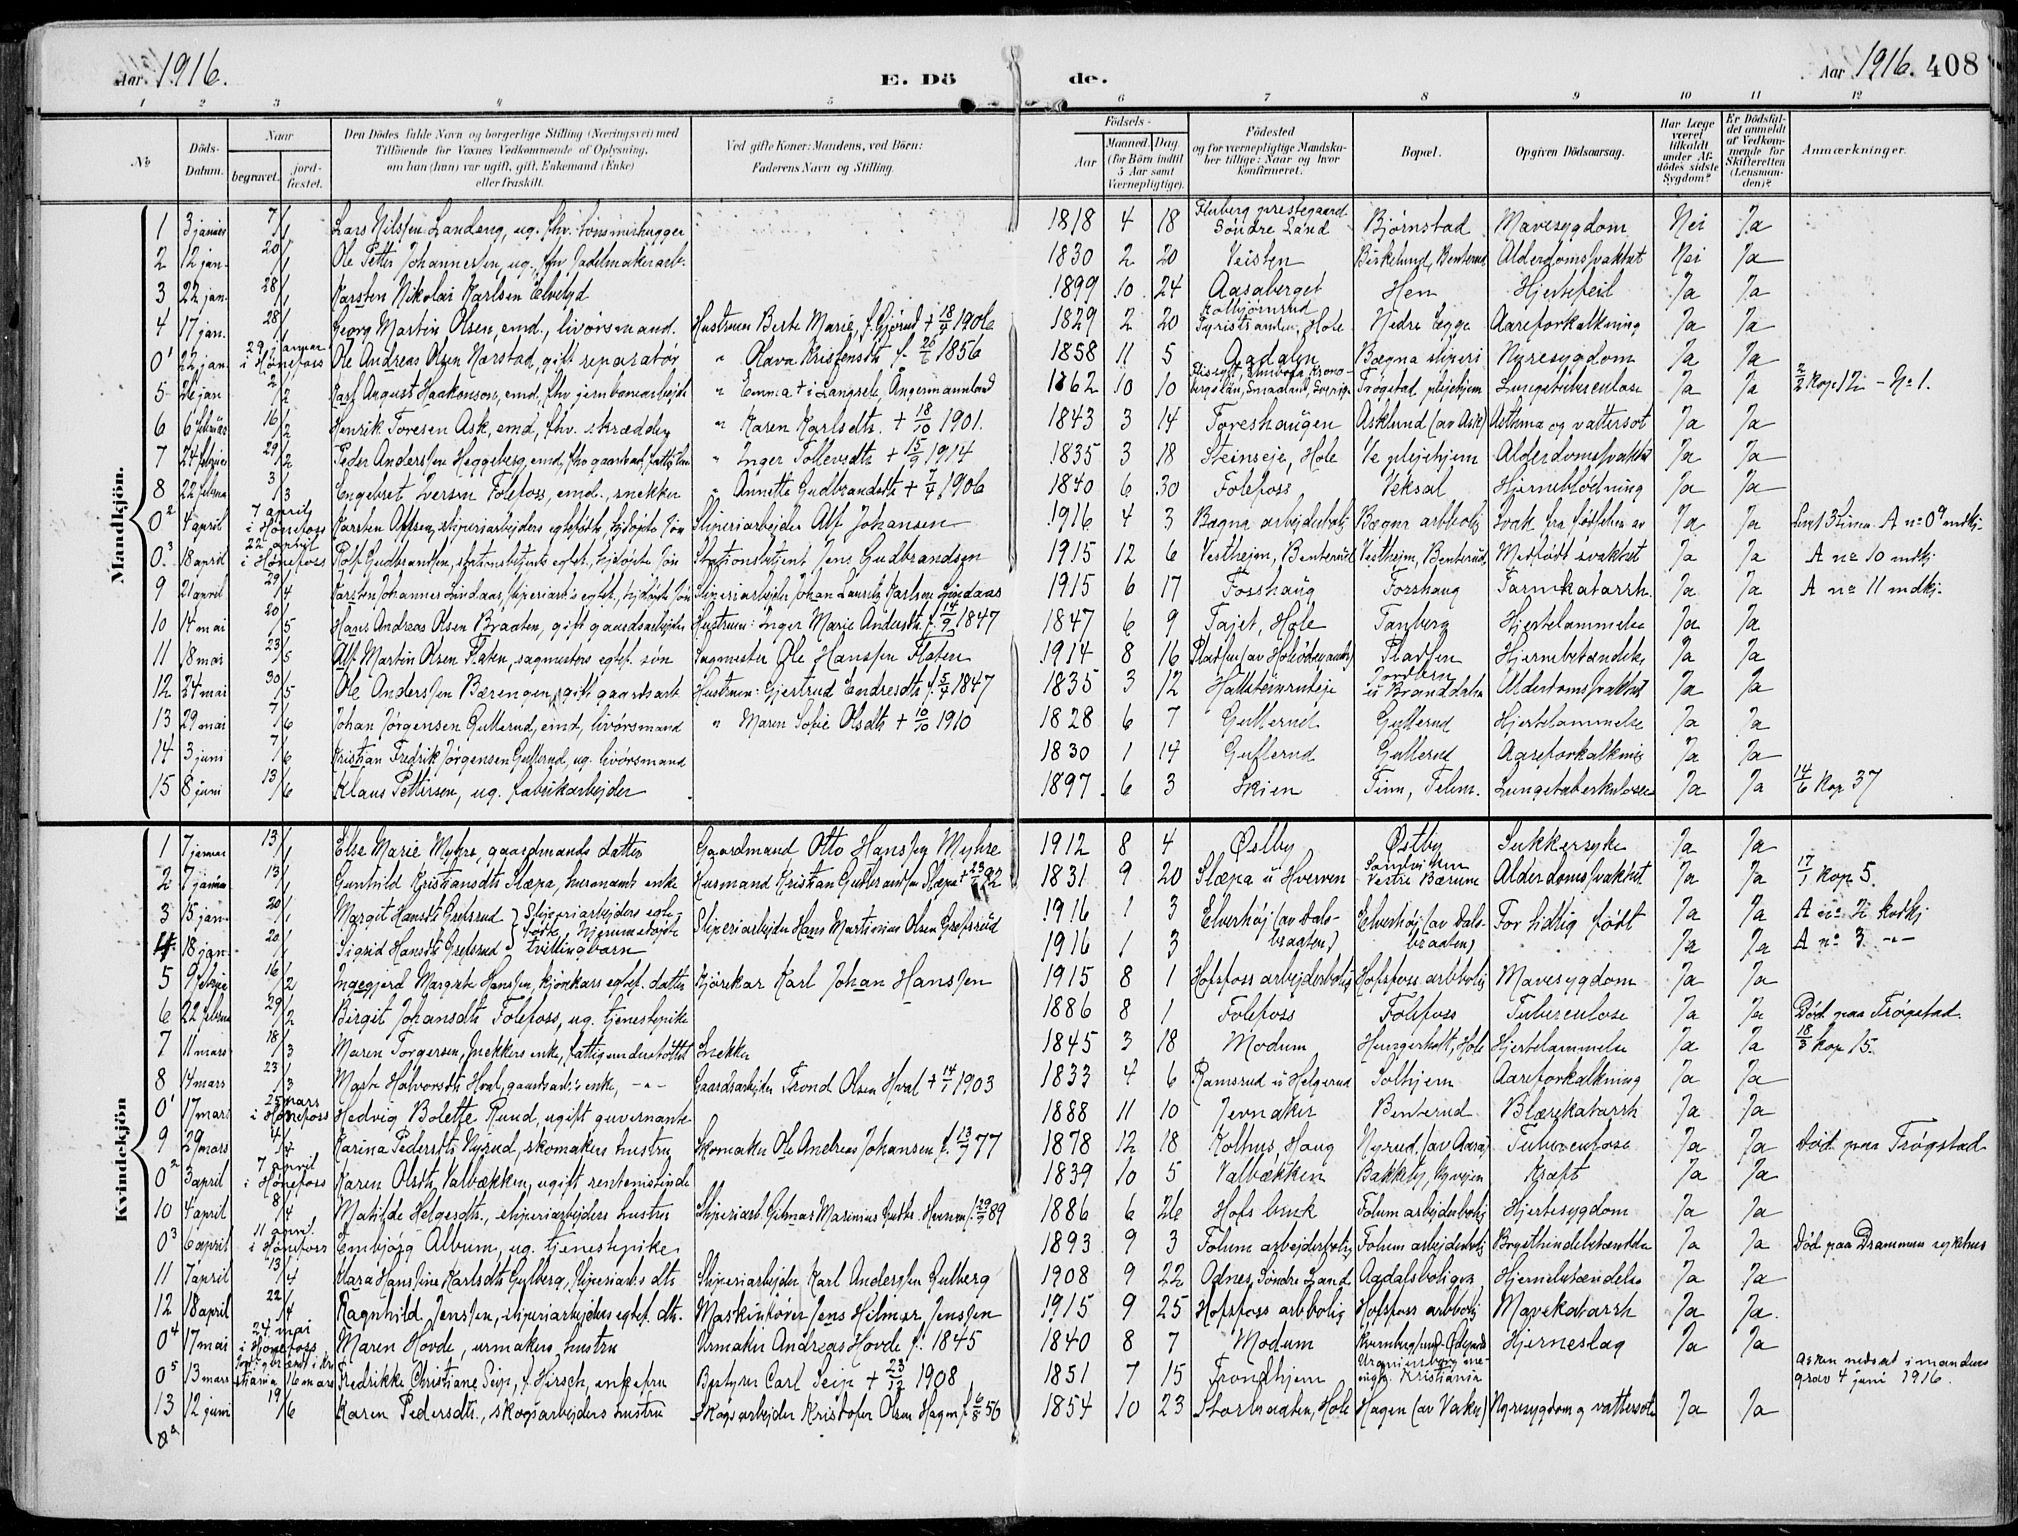 Aar 1916.
E. Dö de.
Aar 1916. 408
1 2 3 4 5 6 7 8 9 10 11 12
No
Döds-Datum.
Naar
begravet. jordfæstet.
Den Dödes fulde Navn og borgerlige Stilling (Næringsvei) med
Tilföiende for Voxnes Vedkommende af Oplysning,
om han (hun) var ugift, gift, Enkemand (Enke)
eller fraskilt.
Ved gifte Koner: Mandens, ved Börn:
Faderens Navn og Stilling.
Födsels-
Aar
Maaned. Dag.
(for Börn indtil 5 Aar samt Værnepligtige).
Födested
og for værnepligtige Mandskaber tillige: Naar og hvor konfirmeret.
Bopæl.
Opgiven Dödsaarsag.
Har Læge været tilkaldt under Afdödes sidste Sygdom?
Er Dödsfaldet anmeldt af Vedkommende for Skifteretten (Lensmanden)?
Anmærkninger.
Mandkjön.
1 3 januar 7/1 Lars Nilssen Landeng, ug. fhv. tønsmishugger 1818 4 18 Fluberg prestegaard Søndre Land Bjørnstad Mavesygdom Nei Ja
2 12 jan. 20/1 Ole Petter Johannessen, ug. fhv sadelmakerarb. 1830 2 20 Veisten Birkelund, Benterud Alderdomssvakhet Nei Ja
3 22 jan. 28/1 Karsten Nikolai Karlsen Elvelyd 1899 10 24 Aasaberget Hen Hjertefeil Ja Ja
4 17 jan. 28/1 Georg Martin Olsen, emd., livørsmand. Hustruen Berte Marie, f. Gjørud + 18/4 1906 1829 2 20 Kolbjørnsrud Tyristranden, Hole Nedre Legge Aareforkalkning Ja Ja
0¹ 22 jan. 29 januar i Hønefoss Ole Andreas Olsen Narstad, gift reparatør " Olava Kristensdtr f. 1856 1858 11 5 Aadalen Bægna sliperi Nyresygdom Ja Ja
5 26 jan 2/2 Karl August Haakonson, emd, fhv jernbanearbejd " Emma + i Langsele, Ångermannland 1862 10 10 Smaaland, Sverige Trøgstad plejehjem Lungetuberculose Ja Ja 2/2 Kop 12 - No 1.
6 6 februar 16/2 Henrik Toresen Ask, emd, fhv. skrædder " Karen Karlsdtr. + 18/10 1901. 1843 3 14 Toreshaugen Asklund (av Ask) Asthma og vattersot Ja Ja
7 24 februar 29/2 Peder Anderssen Heggeberg, emd, fhv gaardarb, " Inger Tollevsdtr + 15/9 1914 1835 3 18 Steinseje, Hole Ve plejehjem Alderdomssvakhet Ja Ja
8 22 februar 3/3 Engebret Iversen Folefoss, emd., snekker " Annette Gudbrandsdtr + 7/4 1906 1840 6 30 Folefoss Veksal Hjerneblødning Ja Ja
0² 4 april 7 april i Hønefoss Karsten Alfsen, sliperiarbejders egtefødt, hjdøpte søn Sliperiarbejder Alf Johansen 1916 4 3 Bægna arbejderbolig Bægna arbbolig Svak fra fødselen av Ja Ja Levet 3 timer. A no 0⁹ mdkj.
0³. 18 april 22 april i Hønefoss Rolf Gudbrandsen, stationsbetjents egtef., hjdøpte søn Stationsbetjent Jens Gudbrandsen 1915 12 6 Vestheim, Benterud Vestheim, Benterud. Medfødt svakhet Ja Ja A no 10 mdkj
9 21 april 29/4 Karsten Johannes Lindaas, sliperiarb.s egtef., hjdøpte søn Sliperiarbeider Johan Laurits Karlsen Lindaas 1915 6 17 Fosshaug Fosshaug Tarmkatarrh. Ja Ja A no 11 mdkj.
10 14 mai 20/5 Hans Andreas Olsen Braaten, gift gaardsarbejder Hustruen: Inger Marie Andersdtr. f. 14/9 1847 1847 6 9 Fajet, Hole Tanberg Hjertelammelse Ja Ja
11 18 mai 23/5 Alf Martin Olsen Flaten, sagmesters egtef. søn Sagmester Ole Hanssen Flaten 1914 8 16 Pladsen (av Holødegaard) Pladsen Hjernebetændelse Ja Ja
12 24 mai 30/5 Ole Anderssen Bærengen, gift gaardsarb Hustruen: Gjertrud Endresdtr f. 5/4 1847 1835 3 12 Hallsteinrudeje Jordbru u Branddalen Alderdomssvakhet Ja Ja
13 29 mai 7/6 Johan Jørgensen Gullerud, emd, livørsmand " Maren Sofie Olsdtr + 10/10 1910 1828 6 7 Gullerud Gullerud Hjertelammelse Ja Ja
14 3 juni 7/6 Kristian Fredrik Jørgensen Gullerud, ug. livørsmand 1830 1 14 Gullerud Gullerud Aareforkalkning Ja Ja
15 8 juni 13/6 Klaus Pettersen, ug. fabrikarbejder 1897 6 3 Skien Tinn, Telem. Lungetuberkulose Ja Ja 14/6 Kop 37
Kvindekjön
1 7 januar 13/1 Else Marie Myhre, gaardmands datter Gaardmand Otto Hanssen Myhre 1912 8 4 Østby Østby Sukkersyke Ja Ja
2 7 januar 13/1 Gunhild Kristiansdtr Slæpa, husmands enke Husmand Kristian Gulbrandsen Slæpa + 92 1831 9 20 Slæpa u Hverven Sandviken Vestre Bærum Alderdomssvakhet Ja Ja 17/1 Kop 5.
3 15 jan. 20/1 Margit Hansdtr Grefsrud } Sliperiarbejders egtefødte, hjemmedøpte Sliperiarbejder Hans Martinius Olsen Grefsrud 1916 1 3 Elverhøj (av Dalsbraaten) Elverhøj (av Dalsbraaten) For tidlig født Ja Ja A no 2 kvdkj
4 18 jan. 20/1 Sigrid Hansdtr Grefsrud } tvillingbarn 1916 1 3 Ja Ja A no 3. -"-
5 9 februar 16/2 Ingegjerd Margrete Hanssen, kjørekars egtef. datter Kjørekar Karl Johan Hanssen 1915 8 1 Hofsfoss arbejderbolig Hofsfoss arbbolig Mavesygdom Ja Ja
6 22 februar 29/2 Birgit Johansdtr Folefoss, ug. tjenestepike 1886 8 1 Folefoss Folefoss Tuberculose Ja Ja Død paa Trøgstad.
7 11 mars 18/3 Maren Torgersen, snekkers enke, fattigunderstøttet Snekker 1845 3 18 Modum Hungerholt, Hole Hjertelammelse Ja Ja 18/3 Kop 15.
8 14 mars 23/3 Marte Halvorsdtr Hval, gaardsarb.s enke, -"- Gaardsarbejder Trond Olsen Hval + 14/7 1903 1833 4 6 Ramsrud u Helgerud Solhjem Aareforkalkning Ja Ja
0¹ 17 mars 25 mars i Hønefoss Hedvig Bolette Ruud, ugift guvernante 1888 11 10 Jevnaker Benterud Blærekatarrh Ja Ja
9 29 mars 4/4 Karina Pedersdtr Nyrud, skomakers hustru Skomaker Ole Andreas Johansen f. 13/7 77 1878 12 18 Kolhus, Haug Nyrud (av Aasa) Tuberculose Ja Ja Død paa Trøgstad
0² 3 april 7 april i Hønefoss Karen Olsdtr Valbækken, ugift rentenistinde 1839 10 5 Valbækken Bakkeby, Nyvejen Kræft Ja Ja
10 4 april 8/4 Matilde Helgesdtr., sliperiarbejders hustru Sliperiarb. Hilmar Marinius Gudbr. Hverven f. 29/7 89 1886 6 26 Hofs bruk Follum arbejderbolig Hjertesygdom Ja Ja
0³ 6 april 11 april i Hønefoss Embjørg Album, ug. tjenestepike 1893 9 3 Follum arbejderbolig Follum arbejderbolig Brysthindebetændelse Ja Ja Død paa Drammen sykehus
11 7 april 13/4 Klara Hansine Karlsdtr Gulberg, sliperiarbs dtr. Sliperiarbejder Karl Anderssen Gulberg 1908 9 22 Odnes, Søndre Land Aadalsboligen Hjernebetændelse Ja Ja
12 18 april 22/4 Ragnhild Jenssen, sliperiarbejders egtef. dtr. Maskinfører Jens Hilmar Jenssen 1915 9 25 Hofsfoss arbbolig Hofsfoss arbbolig Mavekatarrh Ja Ja.
0⁴ 17 mai 24. mai i Hønefoss Maren Hovde, urmakers hustru Urmaker Andreas Hovde f. 1845 1840 8 7 Modum Hjerneslag Ja Ja
0⁵ 13 mars brændt i Kristiania 16 mars Fredrikke Christiane Seip, f. Hirsch, enkefru Bestyrer Carl Seip + 23/12 1908 1851 7 15 Trondhjem Uranienborg menigh. Kristiania Asken nedsat i mandens grav 4 juni 1916.
13 12 juni 19/6 Karen Pedersdtr., skogsarbejders hustru Skogsarbejder Kristofer Olsen Hagen f. 6/8 56 1854 10 23 Storbraaten, Hole Hagen (av Vaker) Nyresygdom og vattersot Ja Ja